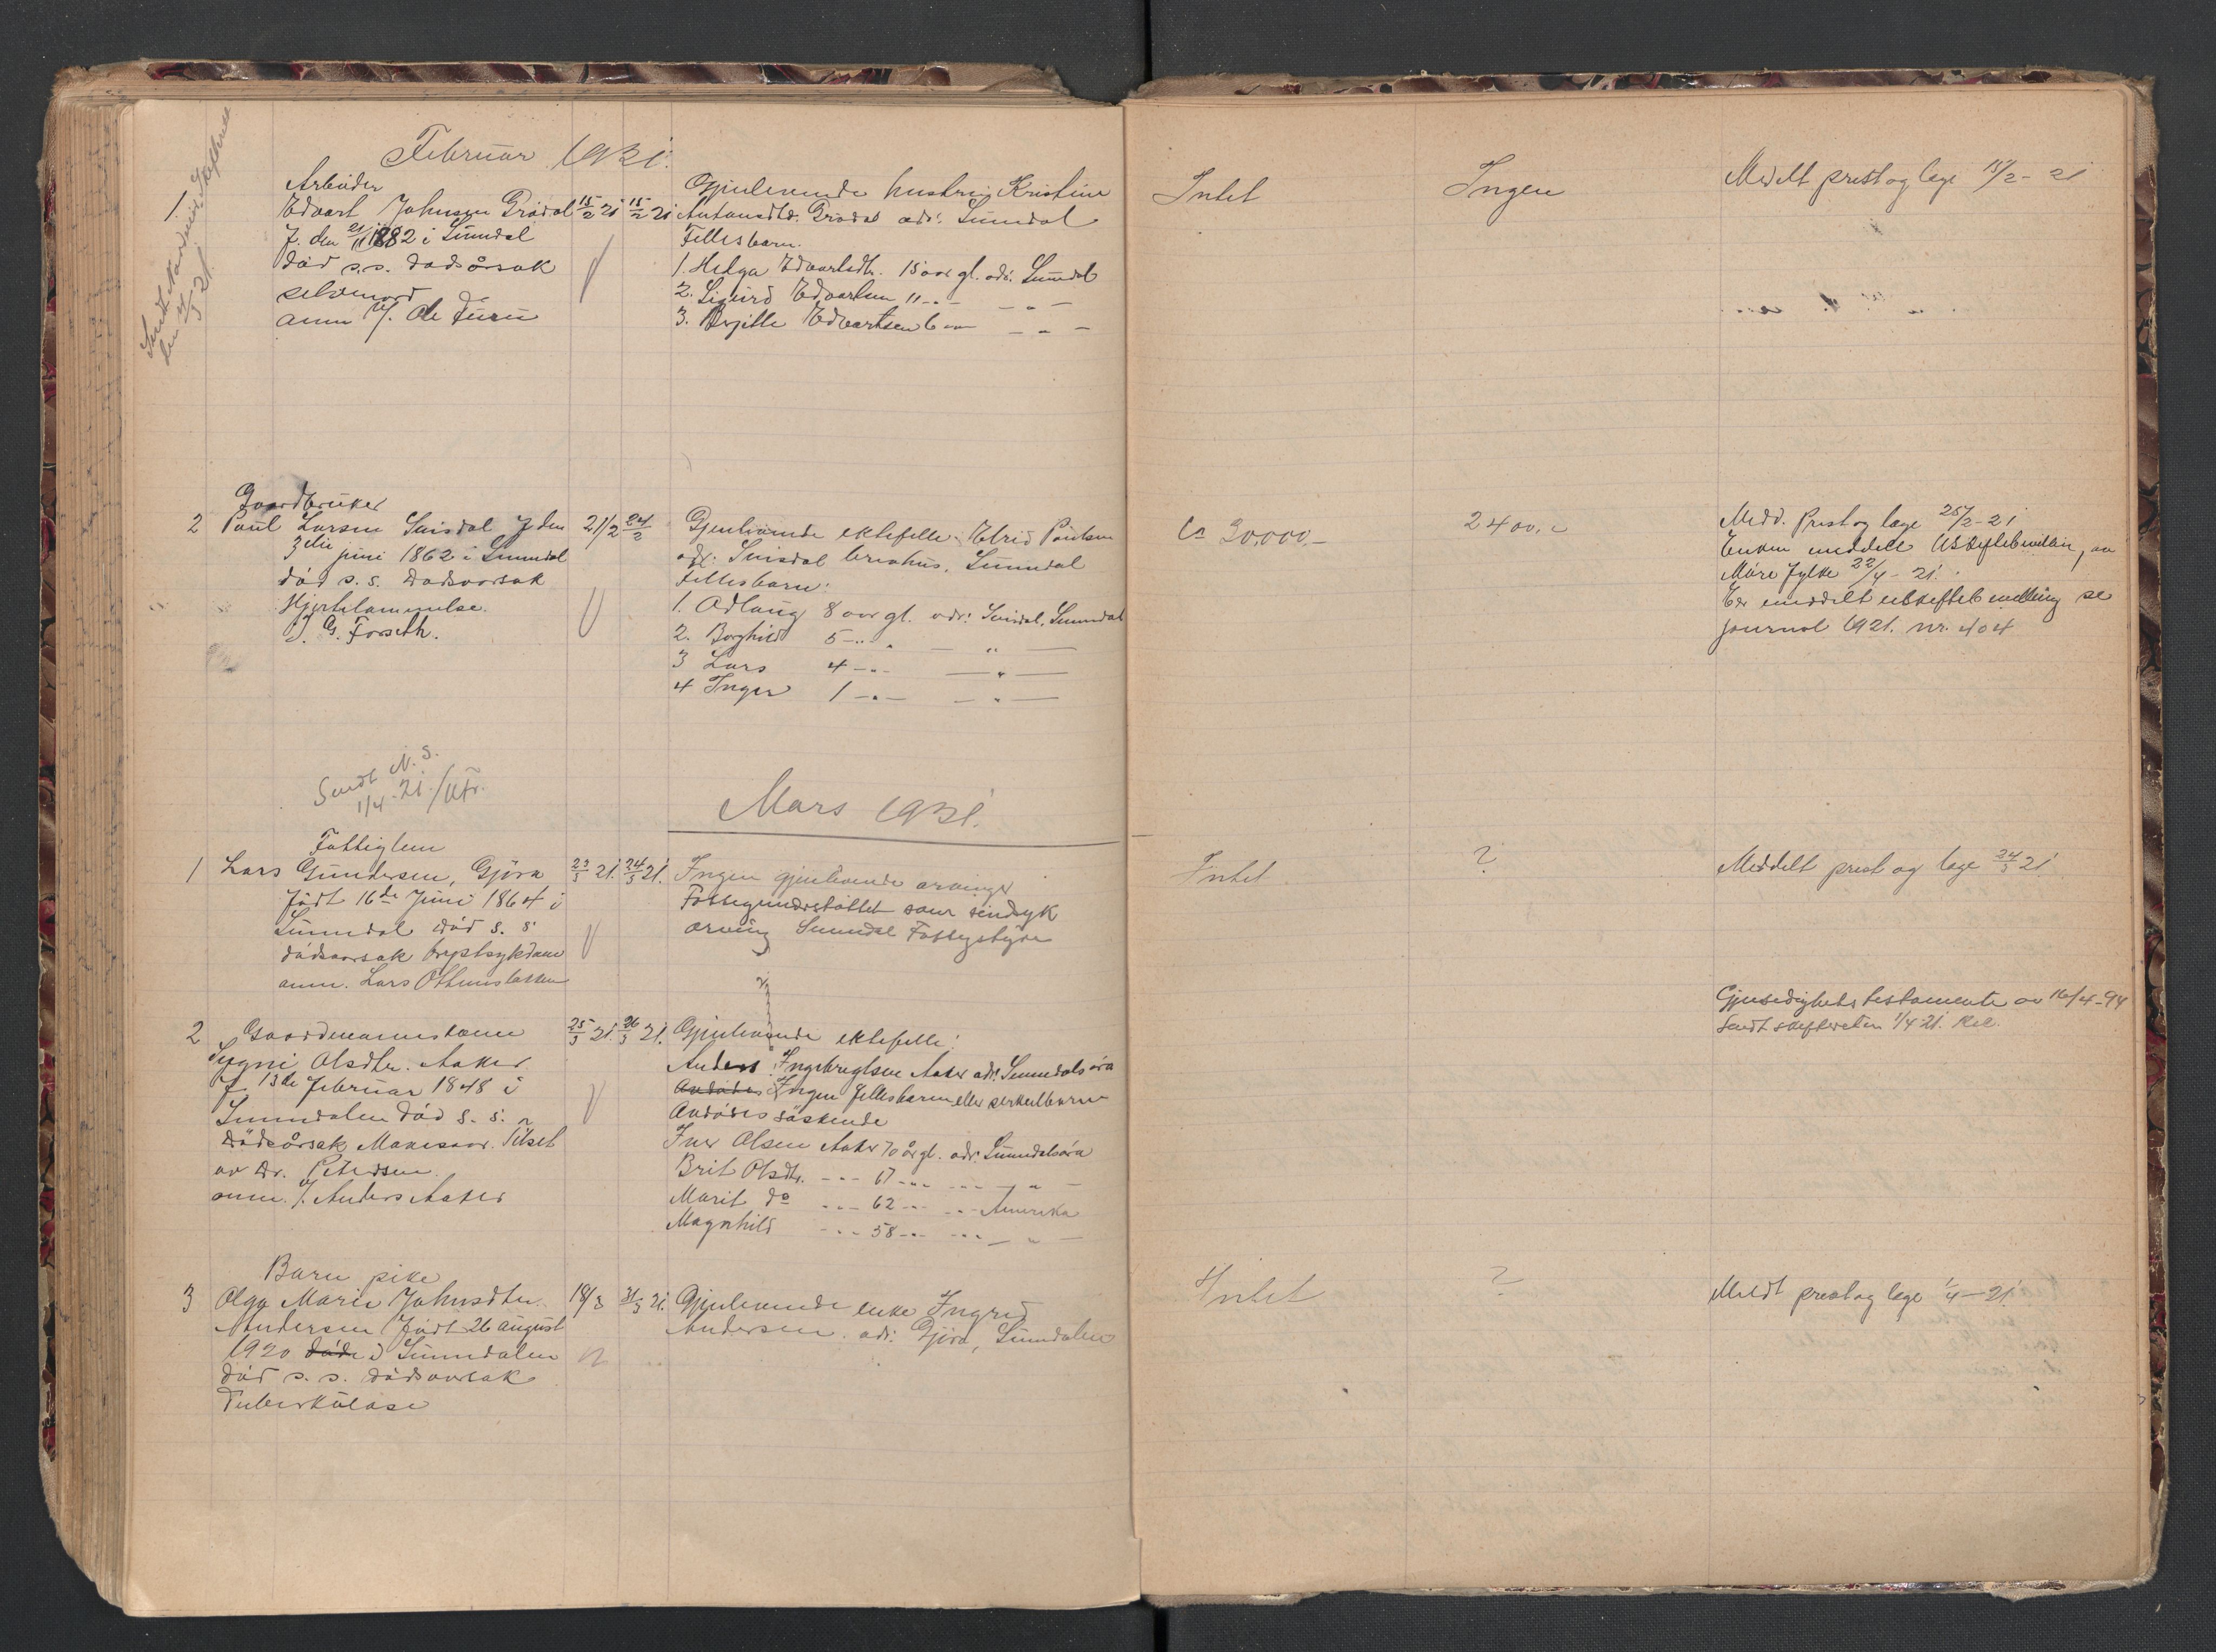 Februar 1921.
1
Arbeider
Edvart Johnsen Grødal 15/2 21 15/2 21
f. den 21/11 1882 i Sunndal
død s.s. dødsårsak
selvmord
anm. v/. Ole Furu
Gjenlevende hustru Kristine
Antonsdtr. Grødal adr. Sunndal
Fellesbarn.
1. Helga Edvartsdtr. 15 aar gl. adr. Sunndal
2. Sigurd Edvartsen 11 -"- - " -
3. Edvartsen 6 - " -
Intet
Ingen
Medelt prest og lege 15/2 - 21
Gaardbruker
2 Paul Larsen Snisdal f den 21/2 24/2
3die juni 1862 i Sunndal
død s. s. dødsaarsak
Hjertelammelse.
J. G. Forseth.
Gjenlevende ektefelle. Elrid Paulsen
adr. Snisdal brevhus, Sunndal
Fellesbarn:
1. Adlaug 8 aar gl. adr: Snisdal, Sunndal
2. Borghild 5 -"- - " -
3 Lars 4 -"- - " -
4 Inger 1 -"- - " -
Ca 30,000.-
2400.-
Medd. Prest og lege 25/2-21
Enken meddelt Uskiftebevilln, av
Møre fylke 22/4 - 21.
Er meddelt uskiftebevilling se
journal 1921. nr. 404
Sendt N. S.
1/4 - 21.
Mars 1921.
Fattiglem
1 Lars Gundersen, Gjøra 23/3 21. 24/3 21.
født 16de Juni 1864 i
Sunndal død s. s.
dødsaarsak brystsykdom
anm. Lars
Ingen gjenlevende arvinger
Fattigunderstøttet som sindsyk
arving Sunndal Fattigstyre
Intet
?
Meddelt prest og lege 24/3 21
2 Gaardmannskone 25/3 21. 26/3 21.
Sygni Olsdtr. Aaker
f 13de Februar 1848 i
Sunndalen død s. s.
dødsårsak Tilset
av Dr. Petersen.
anm. v/. Anders Aaker
Gjenlevende ektefelle:
Anders Ingebregtsen Aaker adr. Sunndalsøra
Avdødes Ingen fellesbarn eller serkulbarn
Avdødes søskende
Iver Olsen Aaker 70 år gl. adr. Sunndalsøra
Brit Olsdtr. -"- 67 -"- -"- - " -
Marit do -"- 62 -"- -"- Amerika
Magnhild -"- 58 -"- -"- - " -
Gjensidighets testamente av 16/4-94
Sendt skifteretten 1/4 21.
Barn pike
3 Olga Marie Johnsdtr. 18/3 31/3 21.
Andersen født 26 August
1920 døde i Sunndalen
død s. s. dødsaarsak
Tuberkulose
Gjenlevende enke Ingrid
Andersen. adr: Gjøra, Sunndalen
Intet
?
Meldt prest og lege 1/4 - 21.